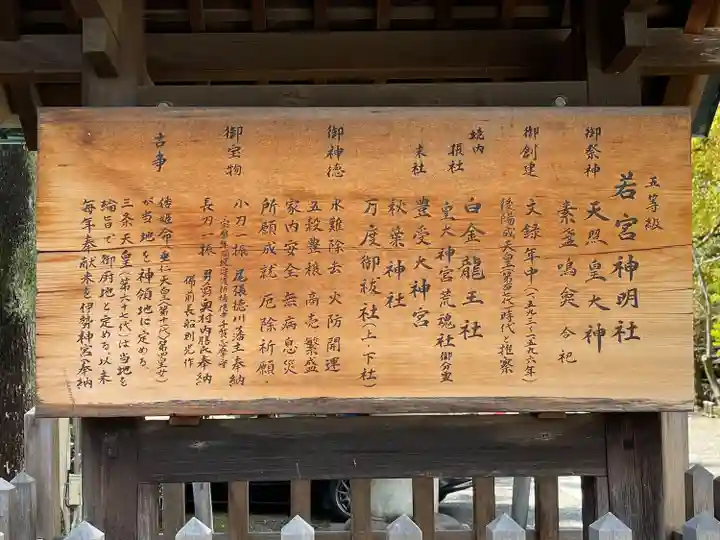 五等級
若宮神明社
御祭神
天照皇大神
素盞鳴尊 合祀
御創建
文録年中(一五九二~一五九六年)
後陽成天皇(第百七代)時代と推察
境内
摂社
白金龍王社
皇大神宮荒魂社 御分霊
末社
豊受大神宮
秋葉神社
万度御祓社(上・下社)
御神徳
水難除去 火防開運
五穀豊穣 商売繁盛
家内安全 無病息災
所願成就 厄除祈願
御宝物
小刀一振 尾張徳川藩主奉納
長刀一振 男爵奥村内膳氏奉納
備前長船則光作
古事
倭姫命(垂仁天皇(第十一代)第四皇女)
が当地を神領地に定める
三条天皇(第六七代)は当地を
綸旨で御府地と定める以来
毎年奉献米を伊勢神宮奉納